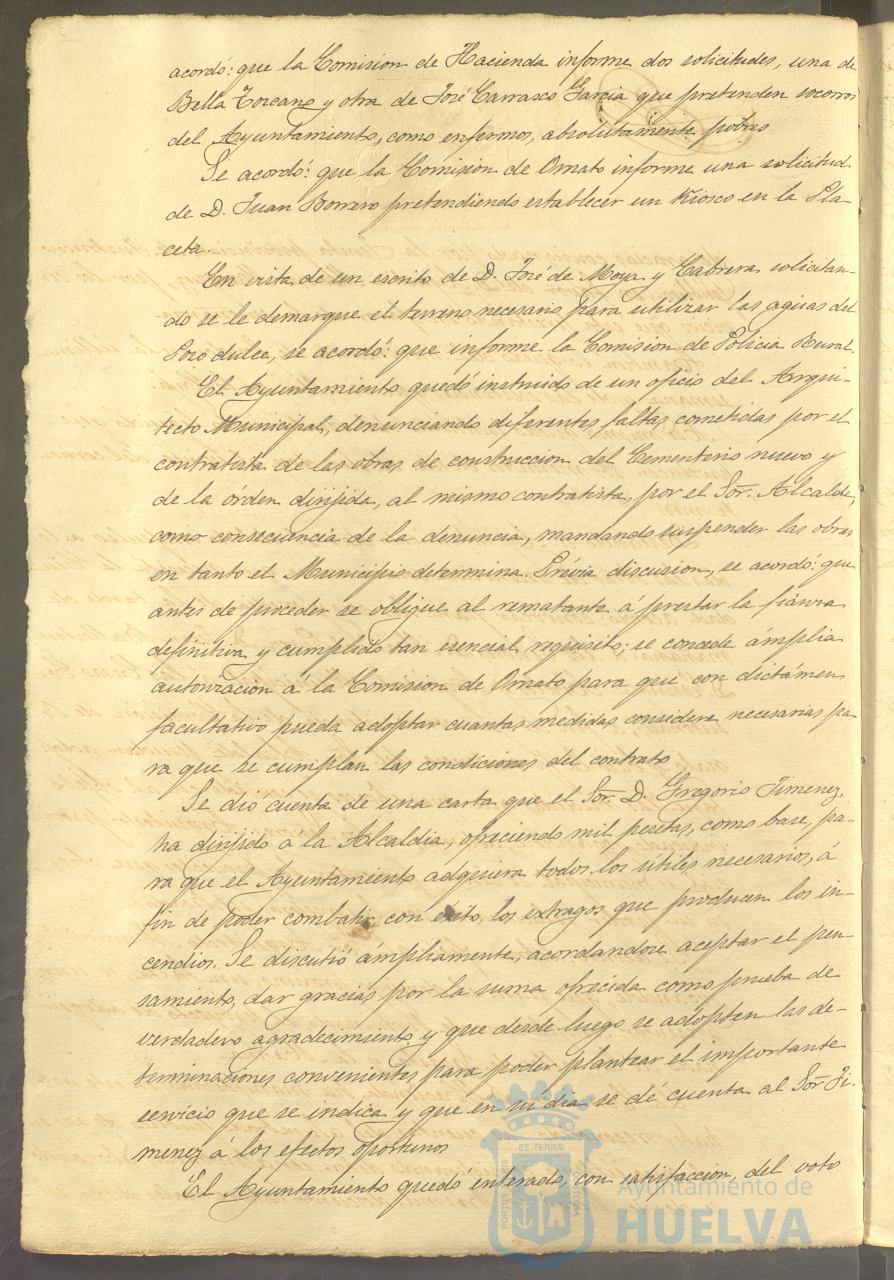 acordó: que la Comision de Hacienda informe dos solicitudes, una de
Bella Toscano y otra de José Carrasco Garcia que pretenden socorros
del Ayuntamiento, como enfermos, absolutamente pobres
Se acordó: que la Comision de Ornato informe una solicitud
de D. Juan Borrero pretendiendo establecer un Kiosco en la Pla-
ceta.
En vista de un escrito de D. José de Moya y Cabrera solicitan-
do se le demarque el terreno necesario para utilizar las aguas del
Pozo dulce, se acordó: que informe la Comision de Policia Rural.
El Ayuntamiento quedó instruido de un oficio del Arqui-
tecto Municipal, denunciando diferentes faltas cometidas por el
contratista de las obras de construccion del Cementerio nuevo y
de la órden dirijida, al mismo contratista, por el Sor. Alcalde,
como consecuencia de la denuncia, mandando suspender las obras
en tanto el Municipio determina. Prévia discusion, se acordó: que
antes de proceder se obligue al rematante á prestar la fianza
definitiva y cumplido tan esencial requisito; se concede ámplia
autorizacion á la Comision de Ornato para que con dictámen
facultativo pueda adoptar cuantas medidas considere necesarias pa-
ra que se cumplan las condiciones del contrato
Se dió cuenta de una carta que el Sor. D. Gregorio Jimenez,
ha dirijido á la Alcaldia, ofreciendo mil pesetas, como base, pa-
ra que el Ayuntamiento adquiera todos los útiles necesarios, á
fin de poder combatir con exito, los extragos que producen los in-
cendios. Se discutió ámpliamente, acordandose aceptar el pen-
samiento, dar gracias por la suma ofrecida como prueba de
verdadero agradecimiento y que desde luego se adopten las de-
terminaciones convenientes para poder plantear el importante
servicio que se indica y que en su dia se dé cuenta al Sor. Ji-
menez á los efectos oportunos
El Ayuntamiento quedó enterado, con satisfaccion, del voto
ET TERRAE
PORTUS MARIS
CUSTODIA
Ayuntamiento de
HUELVA